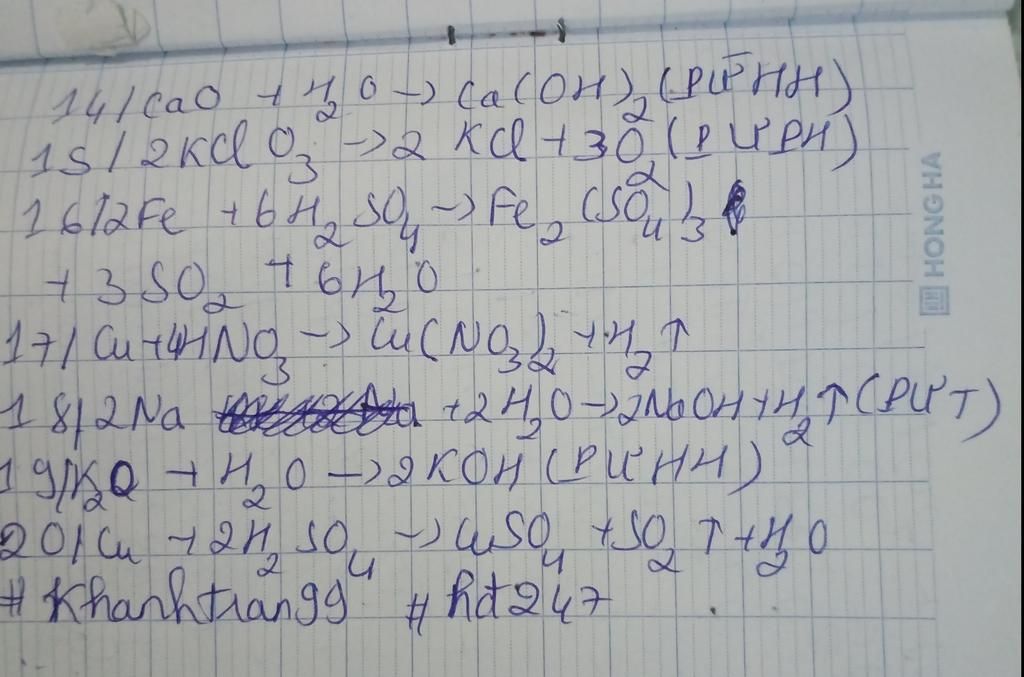 14/ CaO + H₂O → Ca(OH)₂ (PƯHH)
15/ 2KClO₃ → 2KCl + 3O₂ (PƯPH)
16/ 2Fe + 6H₂SO₄ → Fe₂(SO₄)₃
+ 3SO₂ + 6H₂O
17/ Cu + 4HNO₃ → Cu(NO₃)₂ + H₂↑
18/ 2Na + 2H₂O → 2NaOH + H₂↑ (PƯT)
19/ K₂O + H₂O → 2KOH (PƯHH)
20/ Cu + 2H₂SO₄ → CuSO₄ + SO₂↑ + H₂O
# Khanhtrang9 # hdt247
HONG HA